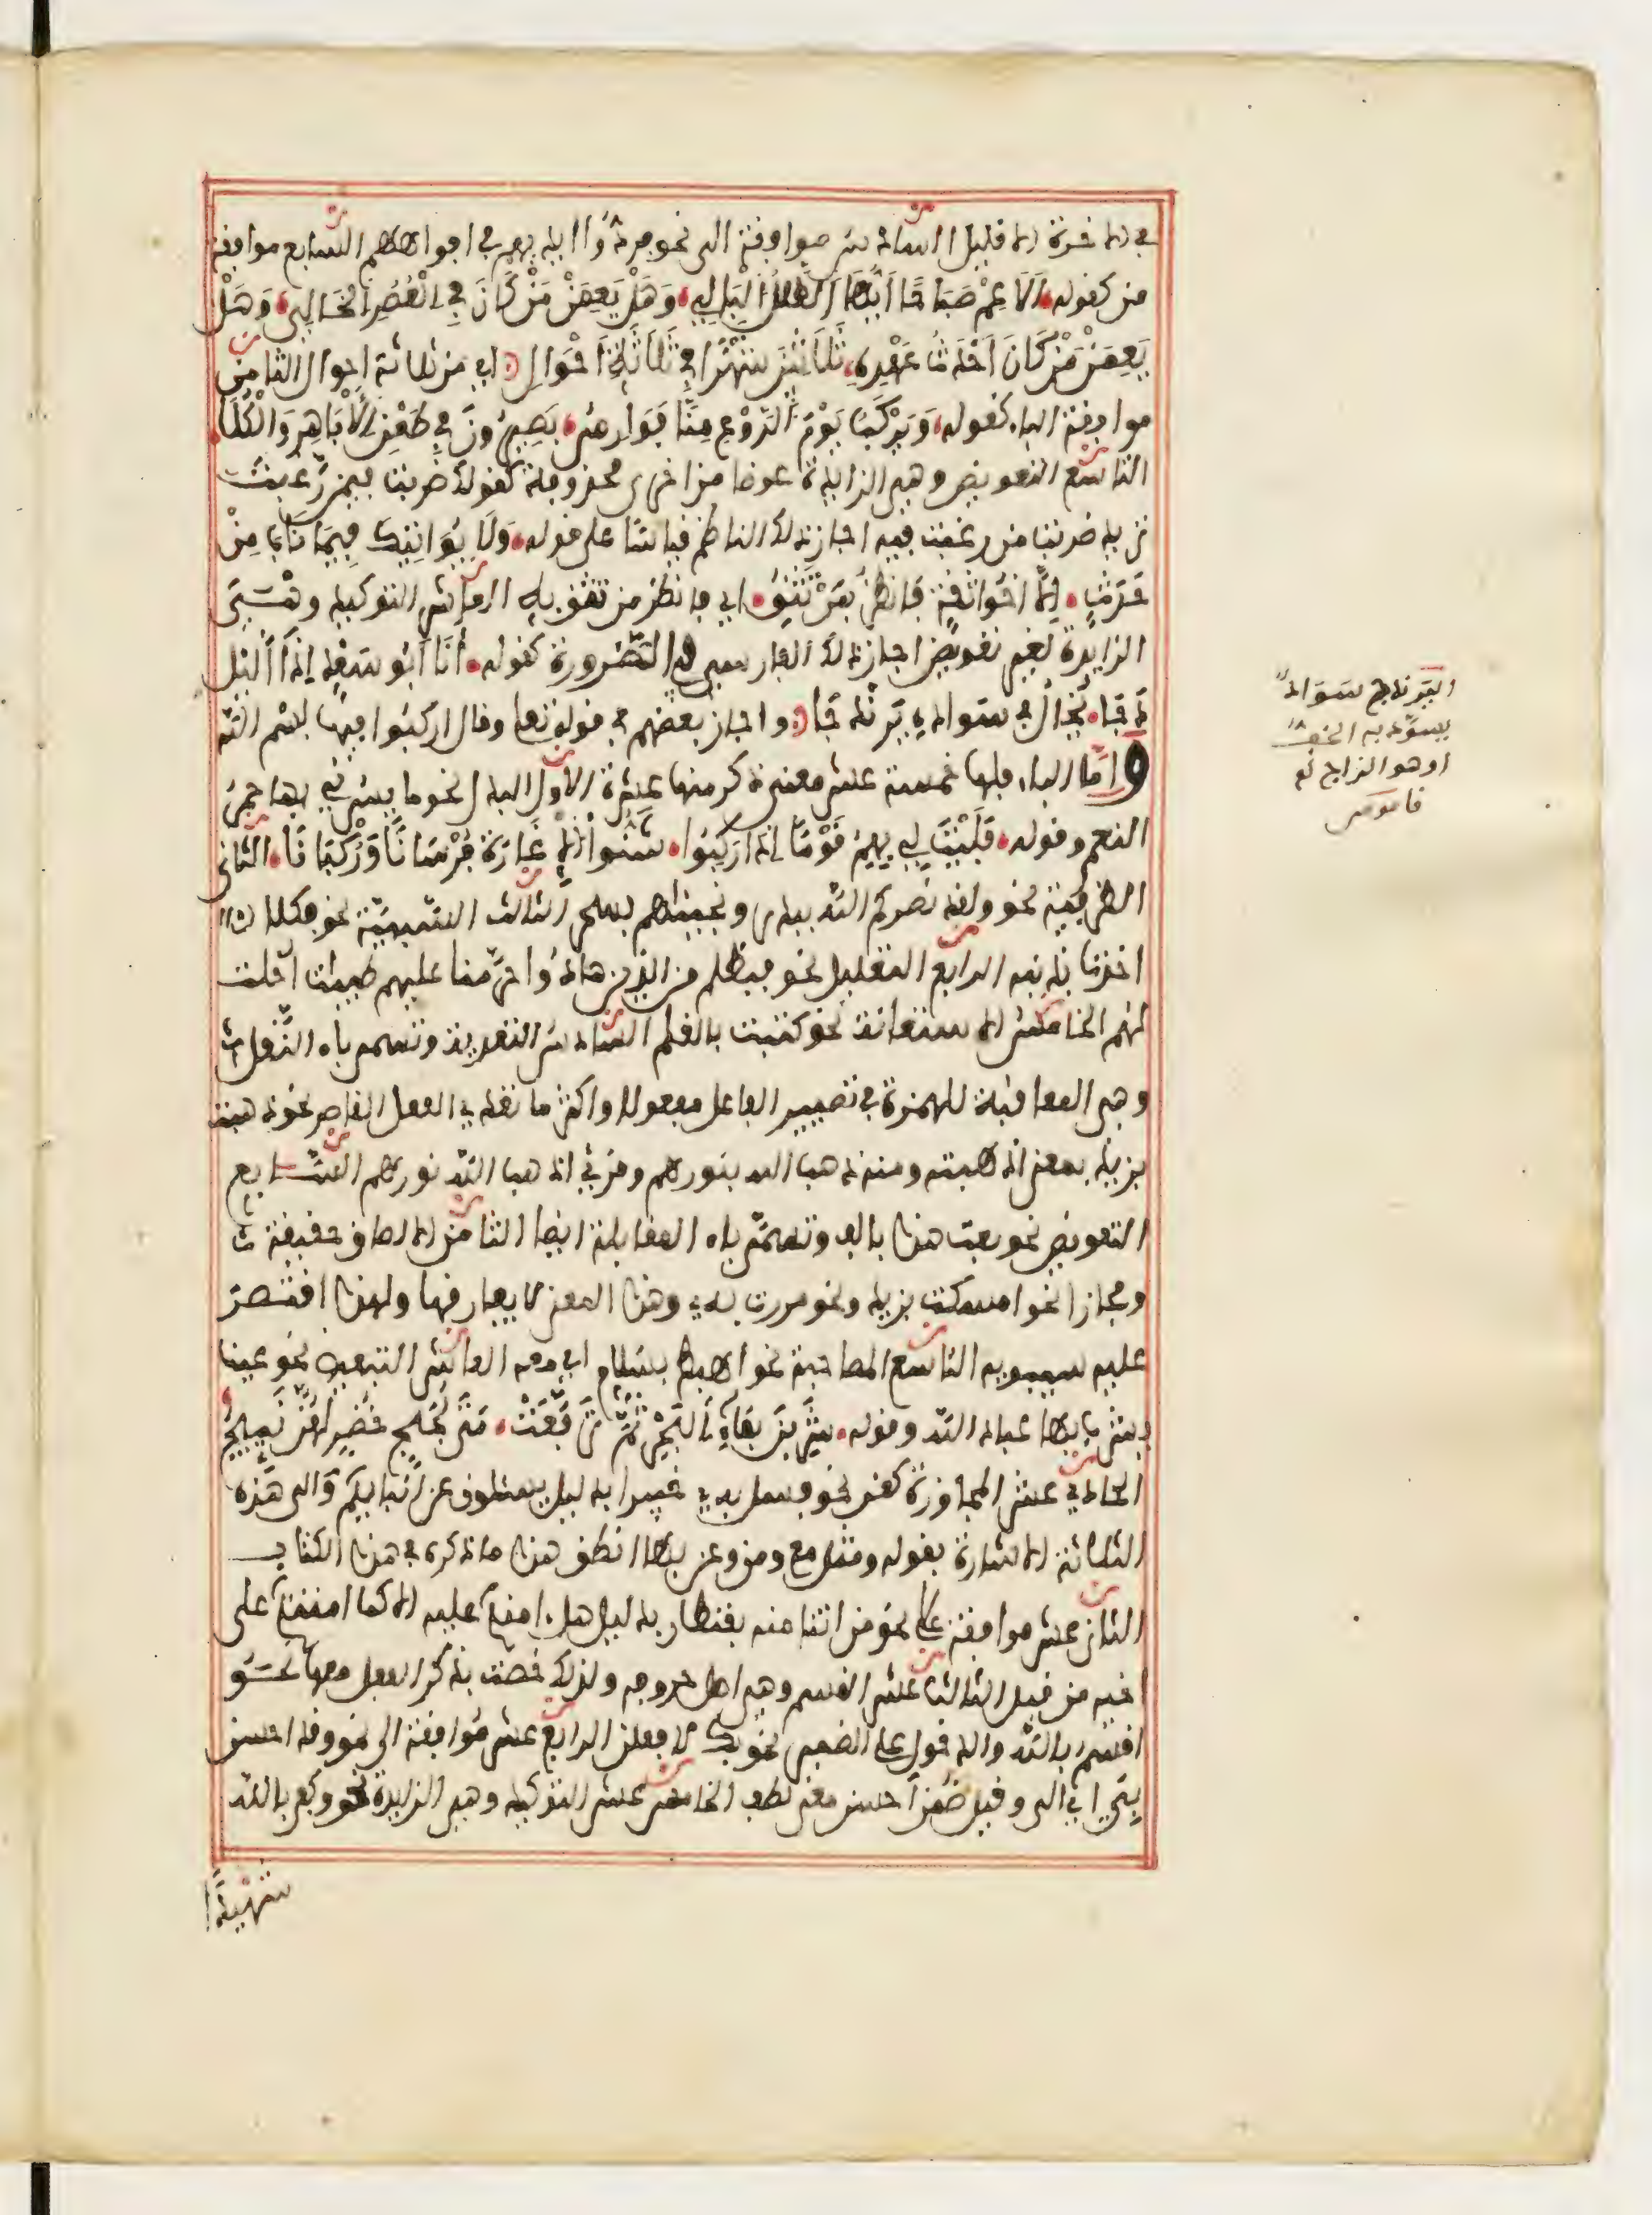 في الاخرة الا قليل السادس موافقة الى نحو فردوا ايديهم في افواههم السابع موافقة
من كقوله اَلَا عِمْ صَبَاحًا اَيُّهَا الطَّلَلُ الْبَالِي وَهَلْ يَعِمَنْ مَنْ كَانَ فِي الْعُصُرِ الْخَالِي وَهَلْ
يَعِمَنْ مَنْ كَانَ اَحْدَثُ عَهْدِهِ ثَلَاثِينَ شَهْرًا فِي ثَلَاثَةِ اَحْوَالِ اي من ثلاثة احوال الثامن
موافقة الباء كقوله وَيَرْكَبُ يَوْمَ الرَّوْعِ مِنَّا فَوَارِسٌ بَصِيرُونَ فِي طَعْنِ الْأَبَاهِرِ وَالْكُلَا
التاسع التعويض وهي الزايدة عوضا من اخرى محذوفة كقولك ضربت فيمن رغبت
تريد ضربت من رغبت فيه اجازه الناظم قياسا على قوله وَلَا يُوَاتِيكَ فِيمَا نَابَ مِنْ
حَدَثٍ اِلَّا اَخُو ثِقَةٍ فَانْظُرْ بِمَنْ تَثِقُ اي فانظر من تثق به العاشر التوكيد وهي
الزايدة لغير تعويض اجازه الفارسي في الضرورة كقوله أَنَا أَبُو سَعْدٍ إِذَا اللَّيْلُ
دَجَا يُخَالُ فِي سَوَادِهِ يَرَنْدَجَا واجاز بعضهم في قوله تعلى وقال اركبوا فيها بسم الله
واما الباء فلها خمسة عشر معنى ذكر منها عشرة الاول البدل نحو ما يسرني بها حمر
النعم وقوله فَلَيْتَ لِي بِهِمُ قَوْمًا اِذَا رَكِبُوا شَنُّوا الْإِغَارَةَ فُرْسَانًا وَرُكْبَانَا الثاني
الظرفية نحو ولقد نصركم الله ببدر ونجيناهم بسحر الثالث السببية نحو فكلا
اخذنا بذنبه الرابع التعليل نحو فبظلم من الذين هادوا حرمنا عليهم طيبات احلت
لهم الخامس الاستعانة نحو كتبت بالقلم السادس التعدية وتسمى باء النقل
وهي المعاقبة للهمزة في تصيير الفاعل مفعولا واكثر ما تعدي الفعل القاصر نحو ذهبت
بزيد بمعنى اذهبته ومنه ذهب الله بنورهم وقرئ اذهب الله نورهم السابع
التعويض نحو بعت هذا بالف وتسمى باء المقابلة ايضا الثامن الالصاق حقيقة
ومجازا نحو امسكت بزيد ونحو مررت به وهذا المعنى لا يفارقها ولهذا اقتصر
عليه سيبويه التاسع المصاحبة نحو اهبط بسلام اي معه العاشر التبعيض نحو عينا
يشرب بها عباد الله وقوله شَرِبْنَ بِمَاءِ الْبَحْرِ ثُمَّ تَرَفَّعَتْ مَتَى لُجَجٍ خُضْرٍ لَهُنَّ نَئِيجُ
الحادي عشر المجاوزة كعن نحو فسل به خبيرا بدليل يسئلون عن انبايكم والى هذه
الثلاثة الاشارة بقوله ومثل مع ومن وعن بها انطق هذا ما ذكره في هذا الكتاب
الثاني عشر موافقة على نحو من ان تامنه بقنطار بدليل هل ءامنكم عليه الا كما امنتكم على
اخيه من قبل الثالث عشر القسم وهي اصل حروفه ولذلك خصت بذكر الفعل معها نحو
اقسم بالله والدخول على الضمير نحو بك لافعلن الرابع عشر موافقة الى نحو وقد احسن
بي اي الي وقيل ضمن احسن معنى لطف الخامس عشر التوكيد وهي الزايدة نحو وكفى بالله
شَهِيدًا
اليرندج سواد
يسود به الخف
او هو الزاج
قاموس